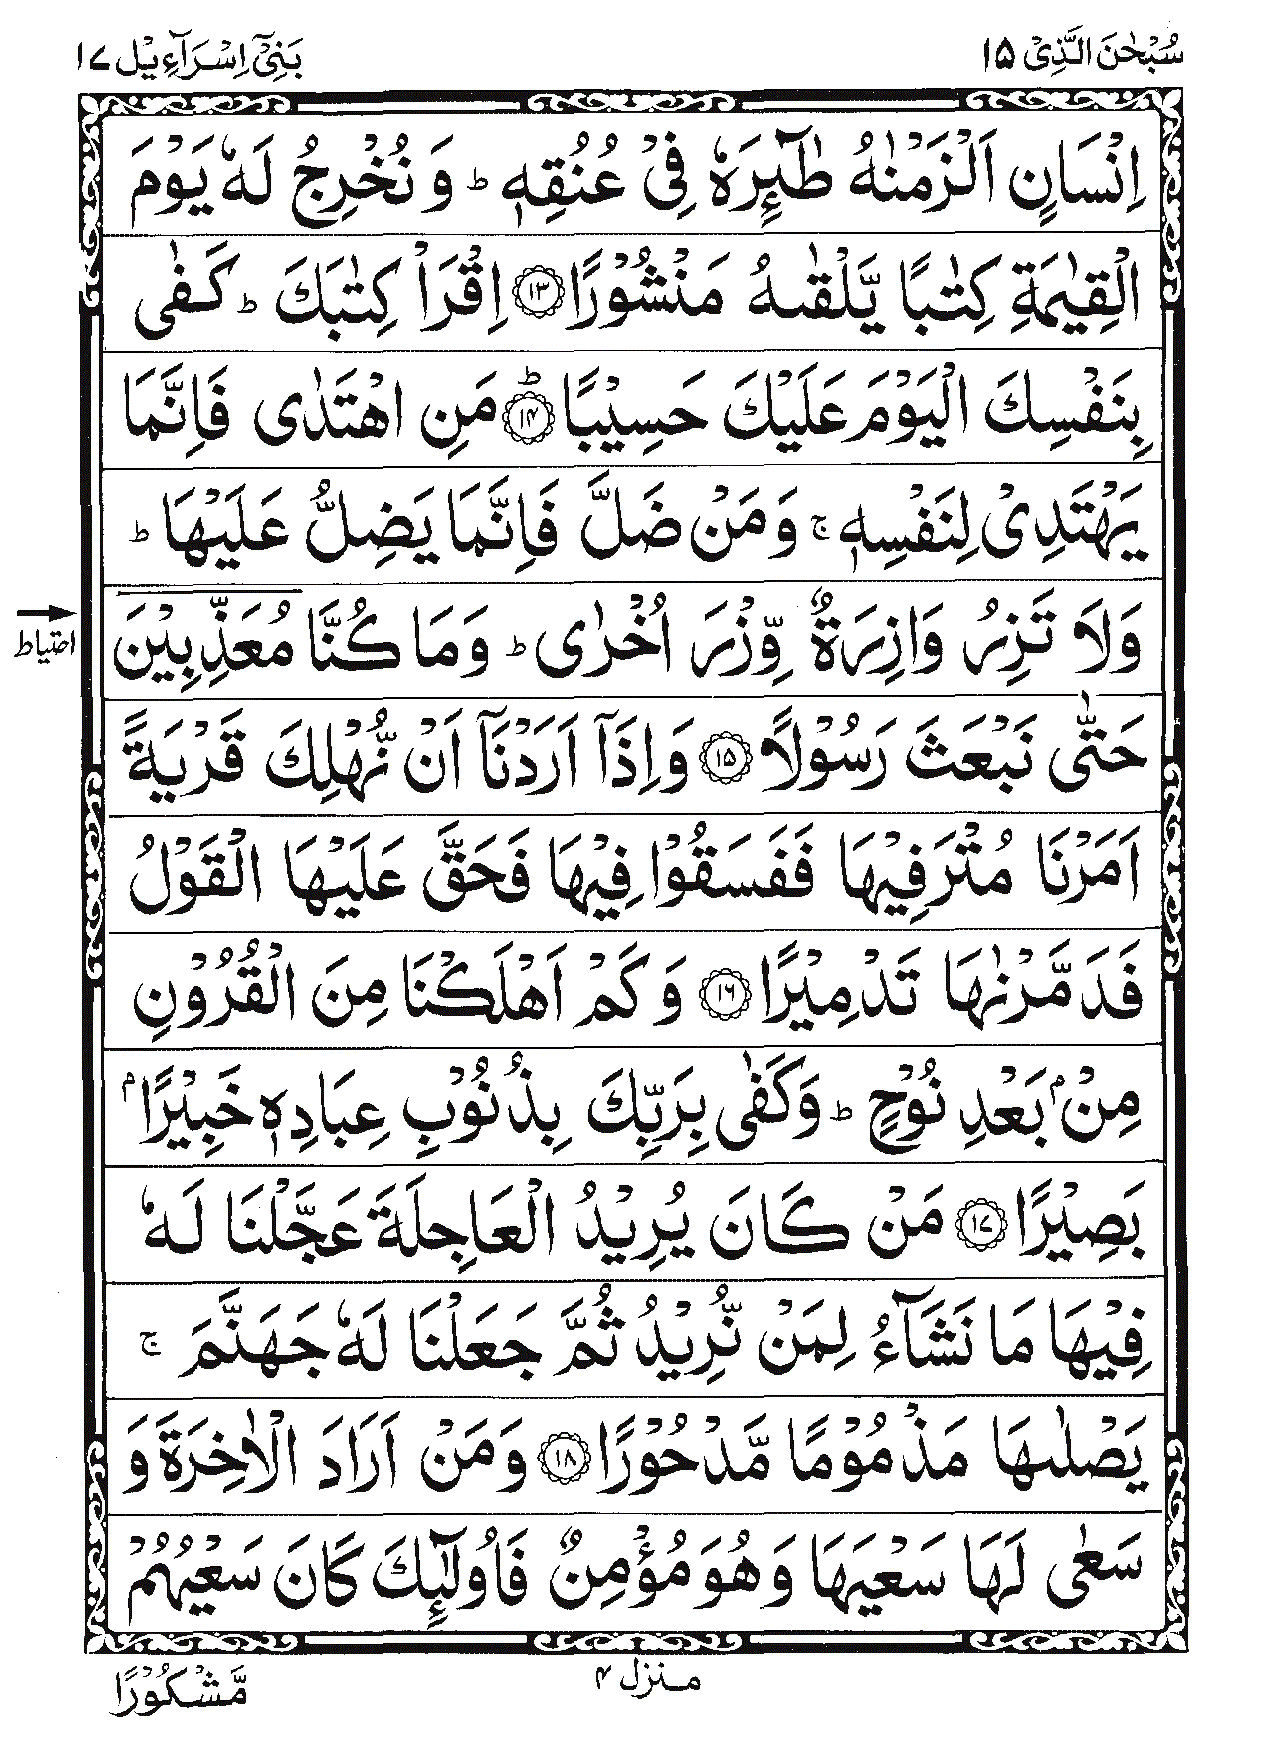 سُبْحٰنَ الَّذِیْۤ ۱۵
بَنِیْۤ اِسْرَآءِیْل ۱۷
اِنْسَانٍ اَلْزَمْنٰهُ طٰٓئِرَهٗ فِیْ عُنُقِهٖ ؕ وَ نُخْرِجُ لَهٗ یَوْمَ
الْقِیٰمَةِ كِتٰبًا یَّلْقٰىهُ مَنْشُوْرًا ﴿۱۳﴾ اِقْرَاْ كِتٰبَكَ ؕ كَفٰی
بِنَفْسِكَ الْیَوْمَ عَلَیْكَ حَسِیْبًا ؕ﴿۱۴﴾ مَنِ اهْتَدٰی فَاِنَّمَا
یَهْتَدِیْ لِنَفْسِهٖ ۚ وَ مَنْ ضَلَّ فَاِنَّمَا یَضِلُّ عَلَیْهَا ؕ
وَلَا تَزِرُ وَازِرَةٌ وِّزْرَ اُخْرٰی ؕ وَمَا كُنَّا مُعَذِّبِیْنَ
احتیاط
حَتّٰی نَبْعَثَ رَسُوْلًا ﴿۱۵﴾ وَاِذَاۤ اَرَدْنَاۤ اَنْ نُّهْلِكَ قَرْیَةً
اَمَرْنَا مُتْرَفِیْهَا فَفَسَقُوْا فِیْهَا فَحَقَّ عَلَیْهَا الْقَوْلُ
فَدَمَّرْنٰهَا تَدْمِیْرًا ﴿۱۶﴾ وَ كَمْ اَهْلَكْنَا مِنَ الْقُرُوْنِ
مِنْۢ بَعْدِ نُوْحٍ ؕ وَكَفٰی بِرَبِّكَ بِذُنُوْبِ عِبَادِهٖ خَبِیْرًۢا
بَصِیْرًا ﴿۱۷﴾ مَنْ كَانَ یُرِیْدُ الْعَاجِلَةَ عَجَّلْنَا لَهٗ
فِیْهَا مَا نَشَآءُ لِمَنْ نُّرِیْدُ ثُمَّ جَعَلْنَا لَهٗ جَهَنَّمَ ۚ
یَصْلٰىهَا مَذْمُوْمًا مَّدْحُوْرًا ﴿۱۸﴾ وَمَنْ اَرَادَ الْاٰخِرَةَ وَ
سَعٰی لَهَا سَعْیَهَا وَ هُوَ مُؤْمِنٌ فَاُولٰٓئِكَ كَانَ سَعْیُهُمْ
منزل ۴
مَّشْكُوْرًا